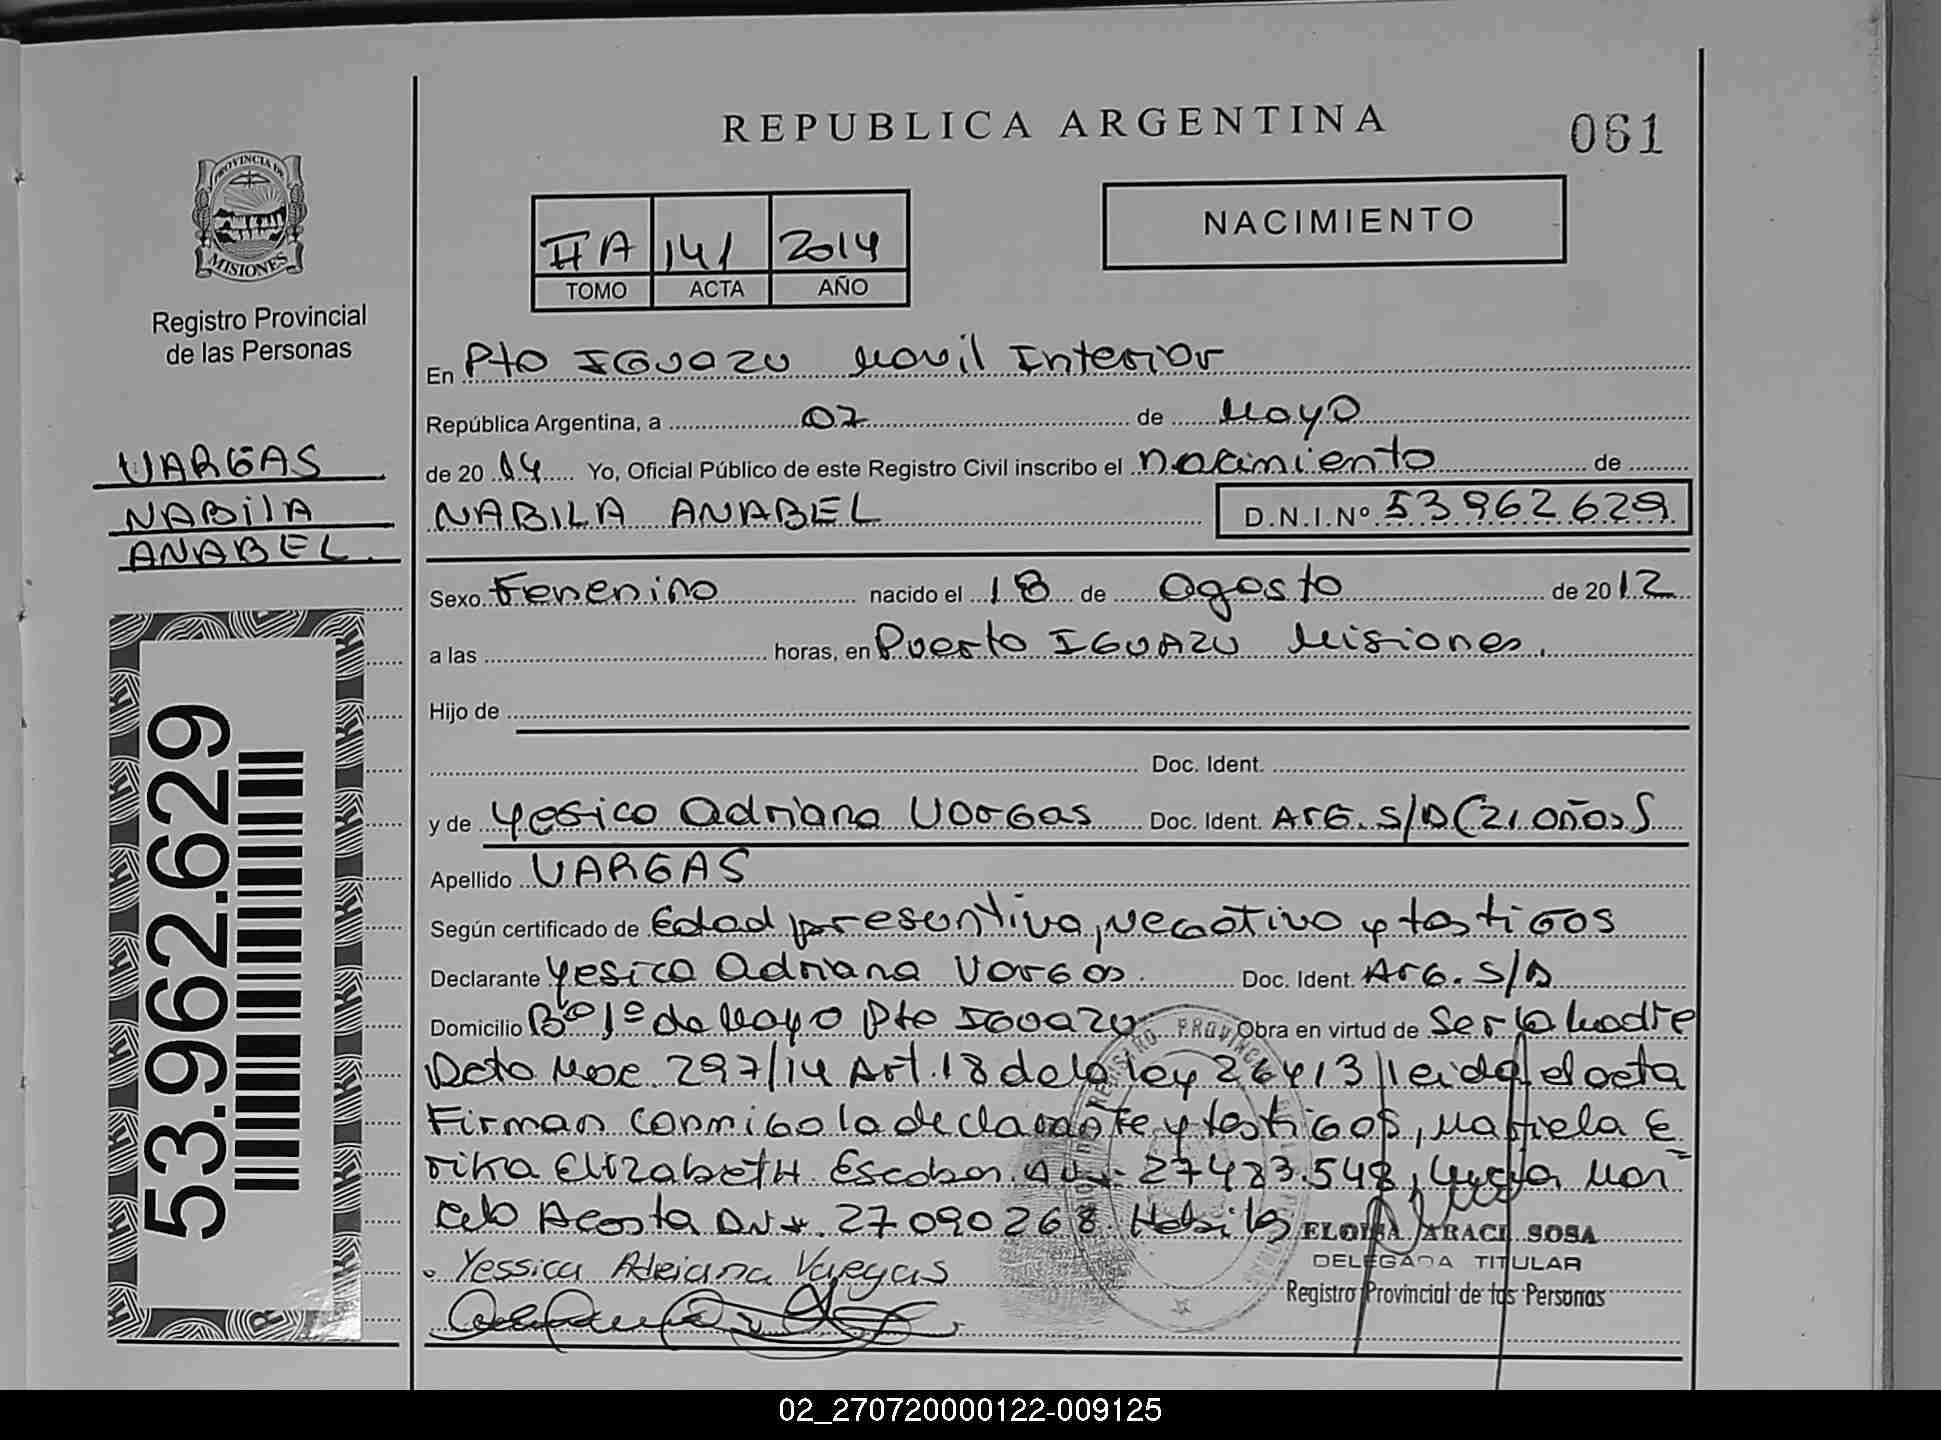 REPUBLICA ARGENTINA
061
PROVINCIA DE
MISIONES
Registro Provincial
de las Personas
II A 141 2014
TOMO ACTA AÑO
NACIMIENTO
En Pto IGUAZU Movil Interior
República Argentina, a 07 de Mayo
de 2014 Yo, Oficial Público de este Registro Civil inscribo el nacimiento de
NABILA ANABEL D.N.I.Nº 53962629
VARGAS
NABilA
ANABEL.
Sexo Femenino nacido el 18 de agosto de 2012
a las horas, en Puerto IGUAZU Misiones.
Hijo de
Doc. Ident.
y de Yesica Adriana Vargas Doc. Ident. ARG. S/D (21 años)
Apellido VARGAS
Según certificado de Edad presuntiva, Negativo y testigos
Declarante Yesica Adriana Vargas. Doc. Ident. ARG. S/D
Domicilio Bº 1º de Mayo Pto Iguazu Obra en virtud de Ser la Madre
Dcto Nac. 297/14 Art. 18 de la ley 26413 leida el acta
Firman conmigo la declarante y testigos, Mariela E
rika Elizabeth Escobar 27483.548, Mar
celo Acosta DN*. 27090268 Habiles
ELOISA ARACI SOSA
DELEGADA TITULAR
Registro Provincial de las Personas
Yessica Adriana Vargas
53.962.629
02_270720000122-009125